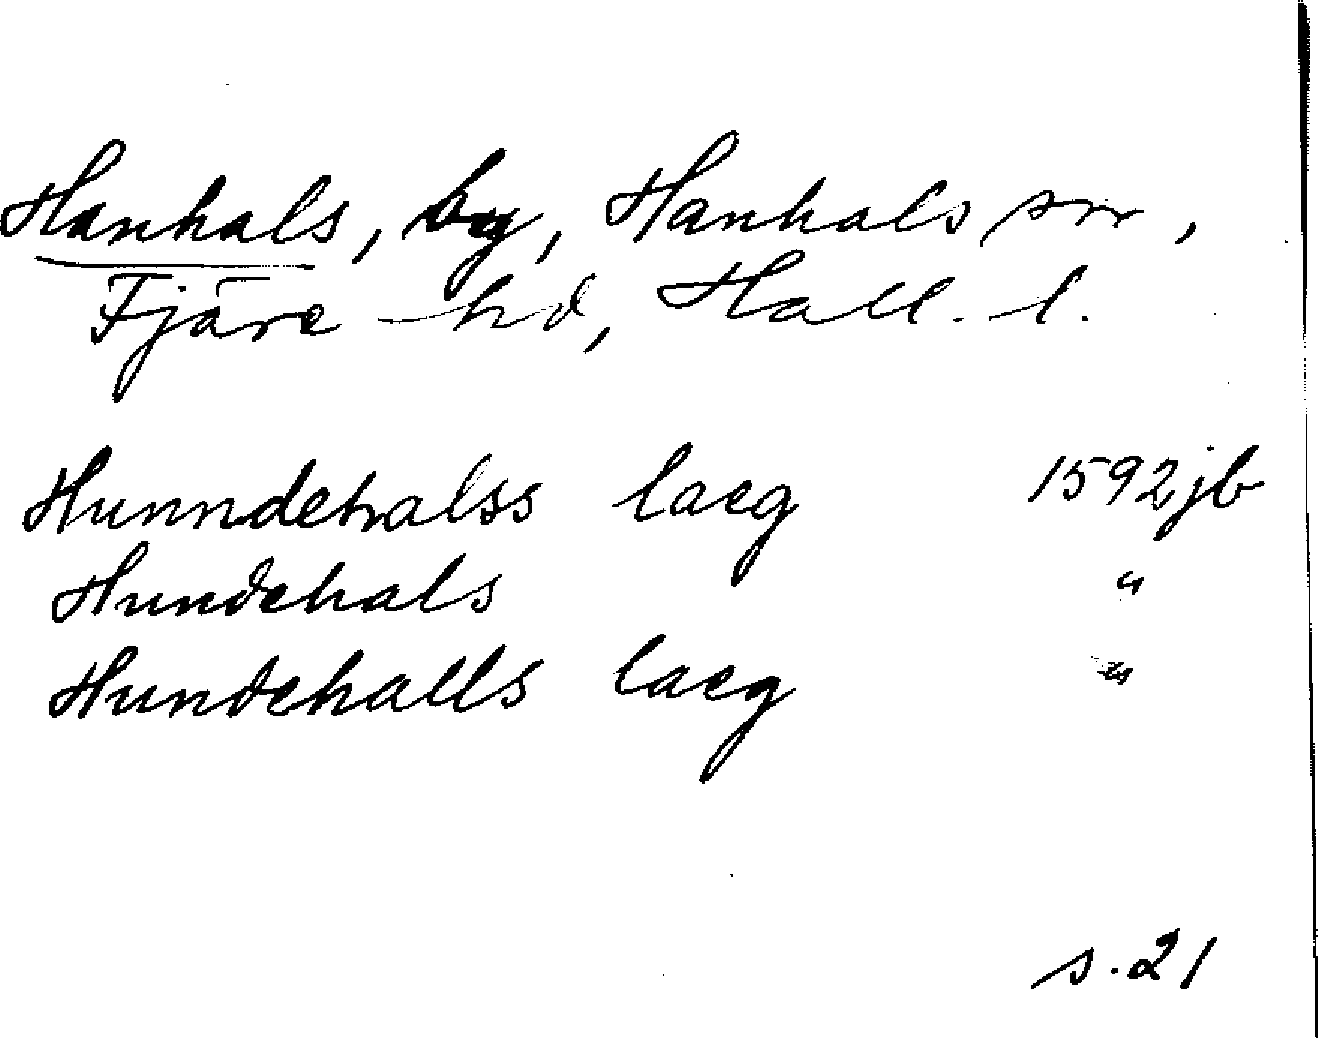 Hanhals, by, Hanhals sn,
Fjäre hd, Hall. l.
Hunndehalss laeg 1592 jb
Hundehals "
Hundehalls laeg "
s. 21